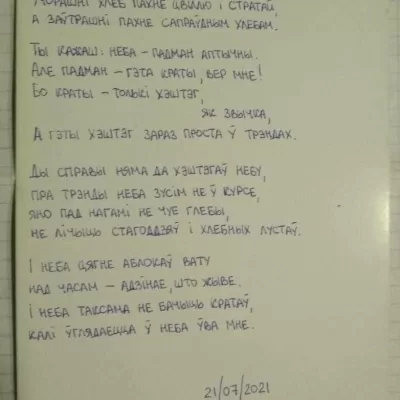 Учорашні хлеб пахне цвіллю і стратай,
а заўтрашні пахне сапраўдным хлебам.
Ты кажаш: неба – падман аптычны.
Але падман – гэта краты, вер мне!
Бо краты – толькі хэштэг,
як звычка,
а гэты хэштэг зараз проста ў трэндах.
Ды справы няма да хэштэгаў небу,
пра трэнды неба зусім не ў курсе,
яно пад нагамі не чуе глебы,
не лічыць стагоддзяў і хлебных лустаў.
І неба цягне аблокаў вату
над часам – адзінае, што жыве.
І неба таксама не бачыць кратаў,
калі ўглядаецца ў неба ўва мне.
21/07/2021